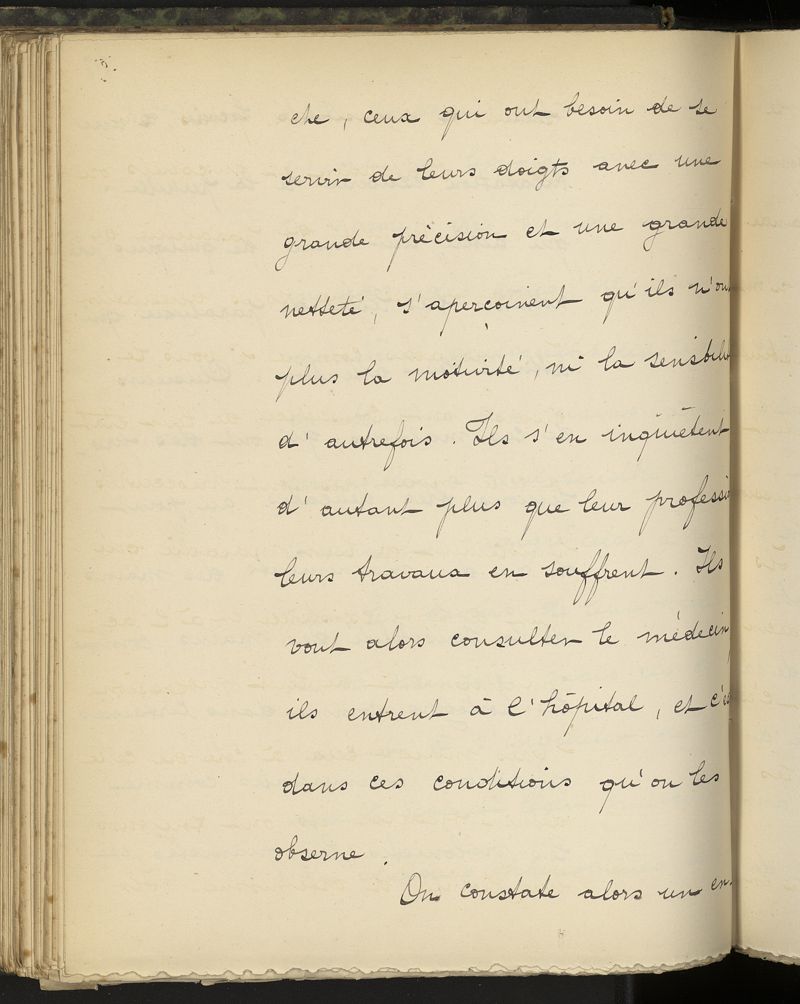 che, ceux qui ont besoin de se
servir de leurs doigts avec une
grande précision et une grande
netteté, s'aperçoivent qu'ils n'on
plus la motivité, ni la sensibili
d'autrefois. Ils s'en inquiètent
d'autant plus que leur professi
leurs travaux en souffrent. Ils
vont alors consulter le médecin,
ils entrent à l'hôpital, et c'es
dans ces conditions qu'on les
observe.
On constate alors un en-